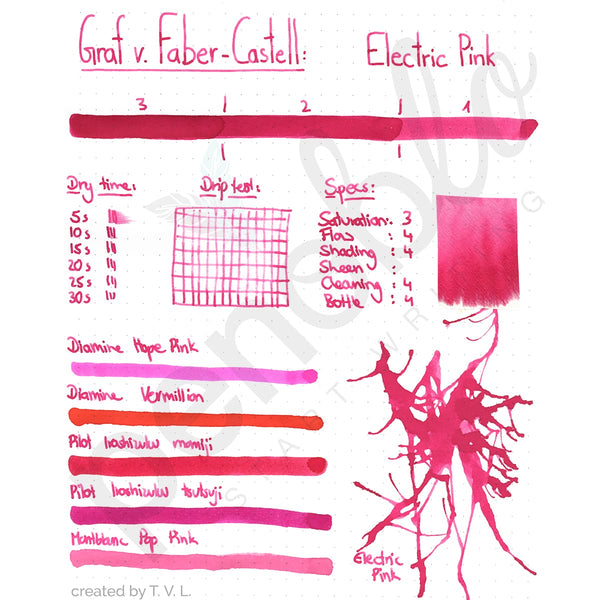 Graf v. Faber-Castell: Electric Pink
3 | 2 | 1
Dry time: Drip test: Specs:
5s
10s
15s
20s
25s
30s
Saturation: 3
Flow : 4
Shading : 4
Sheen :
Cleaning : 4
Bottle : 4
Diamine Hope Pink
Diamine Vermillion
Pilot Iroshizuku momiji
Pilot Iroshizuku tsutsuji
Montblanc Pop Pink
Electric
Pink
penoblo
SMART WRITING
created by T. V. L.